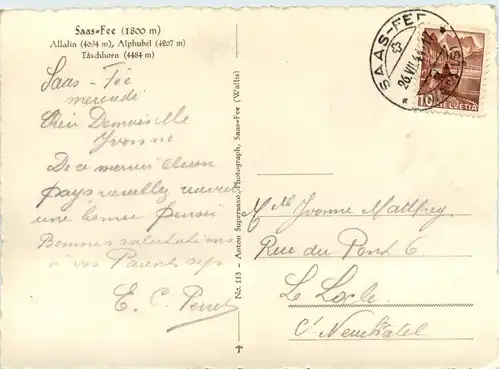 Saas-Fee (1800 m)
Allalin (4034 m), Alphubel (4207 m)
Täschhorn (4484 m)
Saas - Fée
mercredi
Demoiselle
Yvonne
De ce
pays veuillez recevoir
une bonne pensée
Bonnes salutations
à vos Parents
E. C.
No. 113 - Anton Supersaxo, Photograph, Saas-Fee (Wallis)
SAAS-FEE
26.VII.44
10
HELVETIA
Mlle Yvonne Matthey
Rue du Pont 6.
Le Locle
Ct Neuchâtel